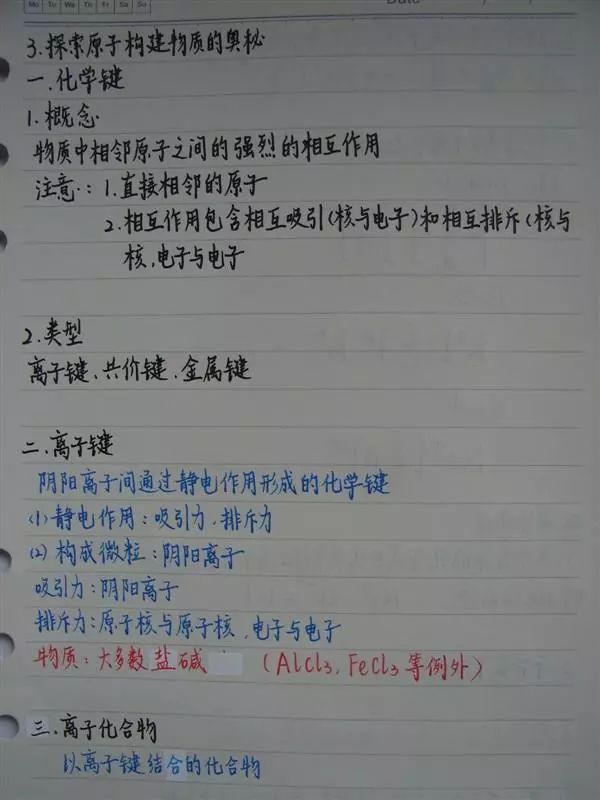 Mo Tu We Th Fr Sa Su
Date
3.探索原子构建物质的奥秘
一.化学键
1.概念
物质中相邻原子之间的强烈的相互作用
注意：1.直接相邻的原子
2.相互作用包含相互吸引(核与电子)和相互排斥(核与
核,电子与电子
2.类型
离子键、共价键、金属键
二.离子键
阴阳离子间通过静电作用形成的化学键
(1)静电作用：吸引力.排斥力
(2)构成微粒：阴阳离子
吸引力：阴阳离子
排斥力：原子核与原子核,电子与电子
物质：大多数盐碱 (AlCl3,FeCl3等例外)
三.离子化合物
以离子键结合的化合物